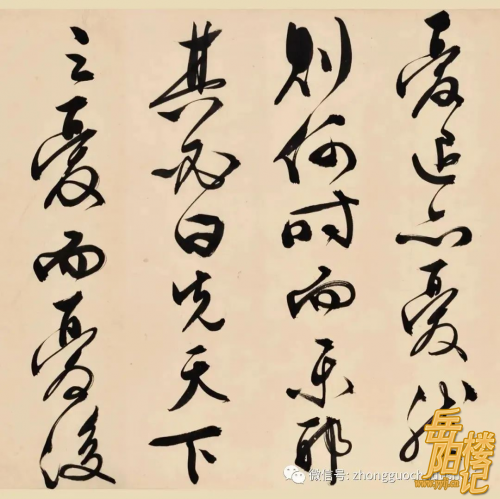 憂退亦憂然
则何时而乐耶
其必曰先天下
之憂而憂後
岳阳楼记
微信号: